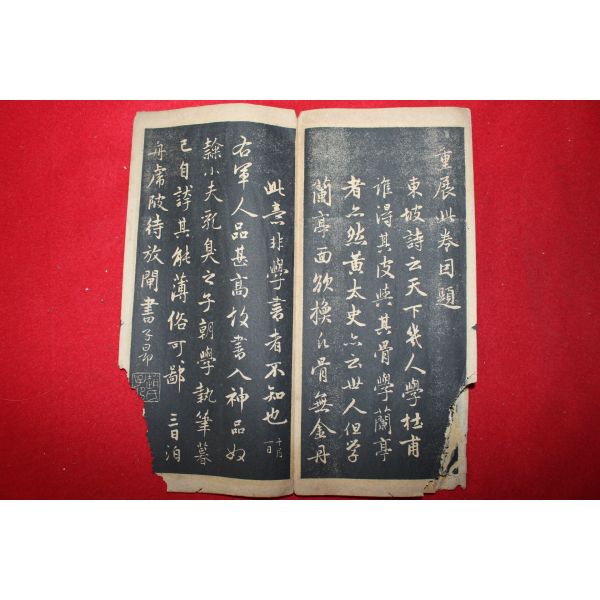 重展此卷因題
東坡詩云天下幾人學杜甫
誰得其皮與其骨學蘭亭
者亦然黃太史亦云世人但学
蘭亭面欲換凡骨無金丹
此意非學書者不知也 十月一日
右軍人品甚高故書入神品奴
隸小夫乳臭之子朝學執筆暮
已自誇其能薄俗可〻鄙 三日泊
舟虎陂待放閘書 子昂
趙氏子昂